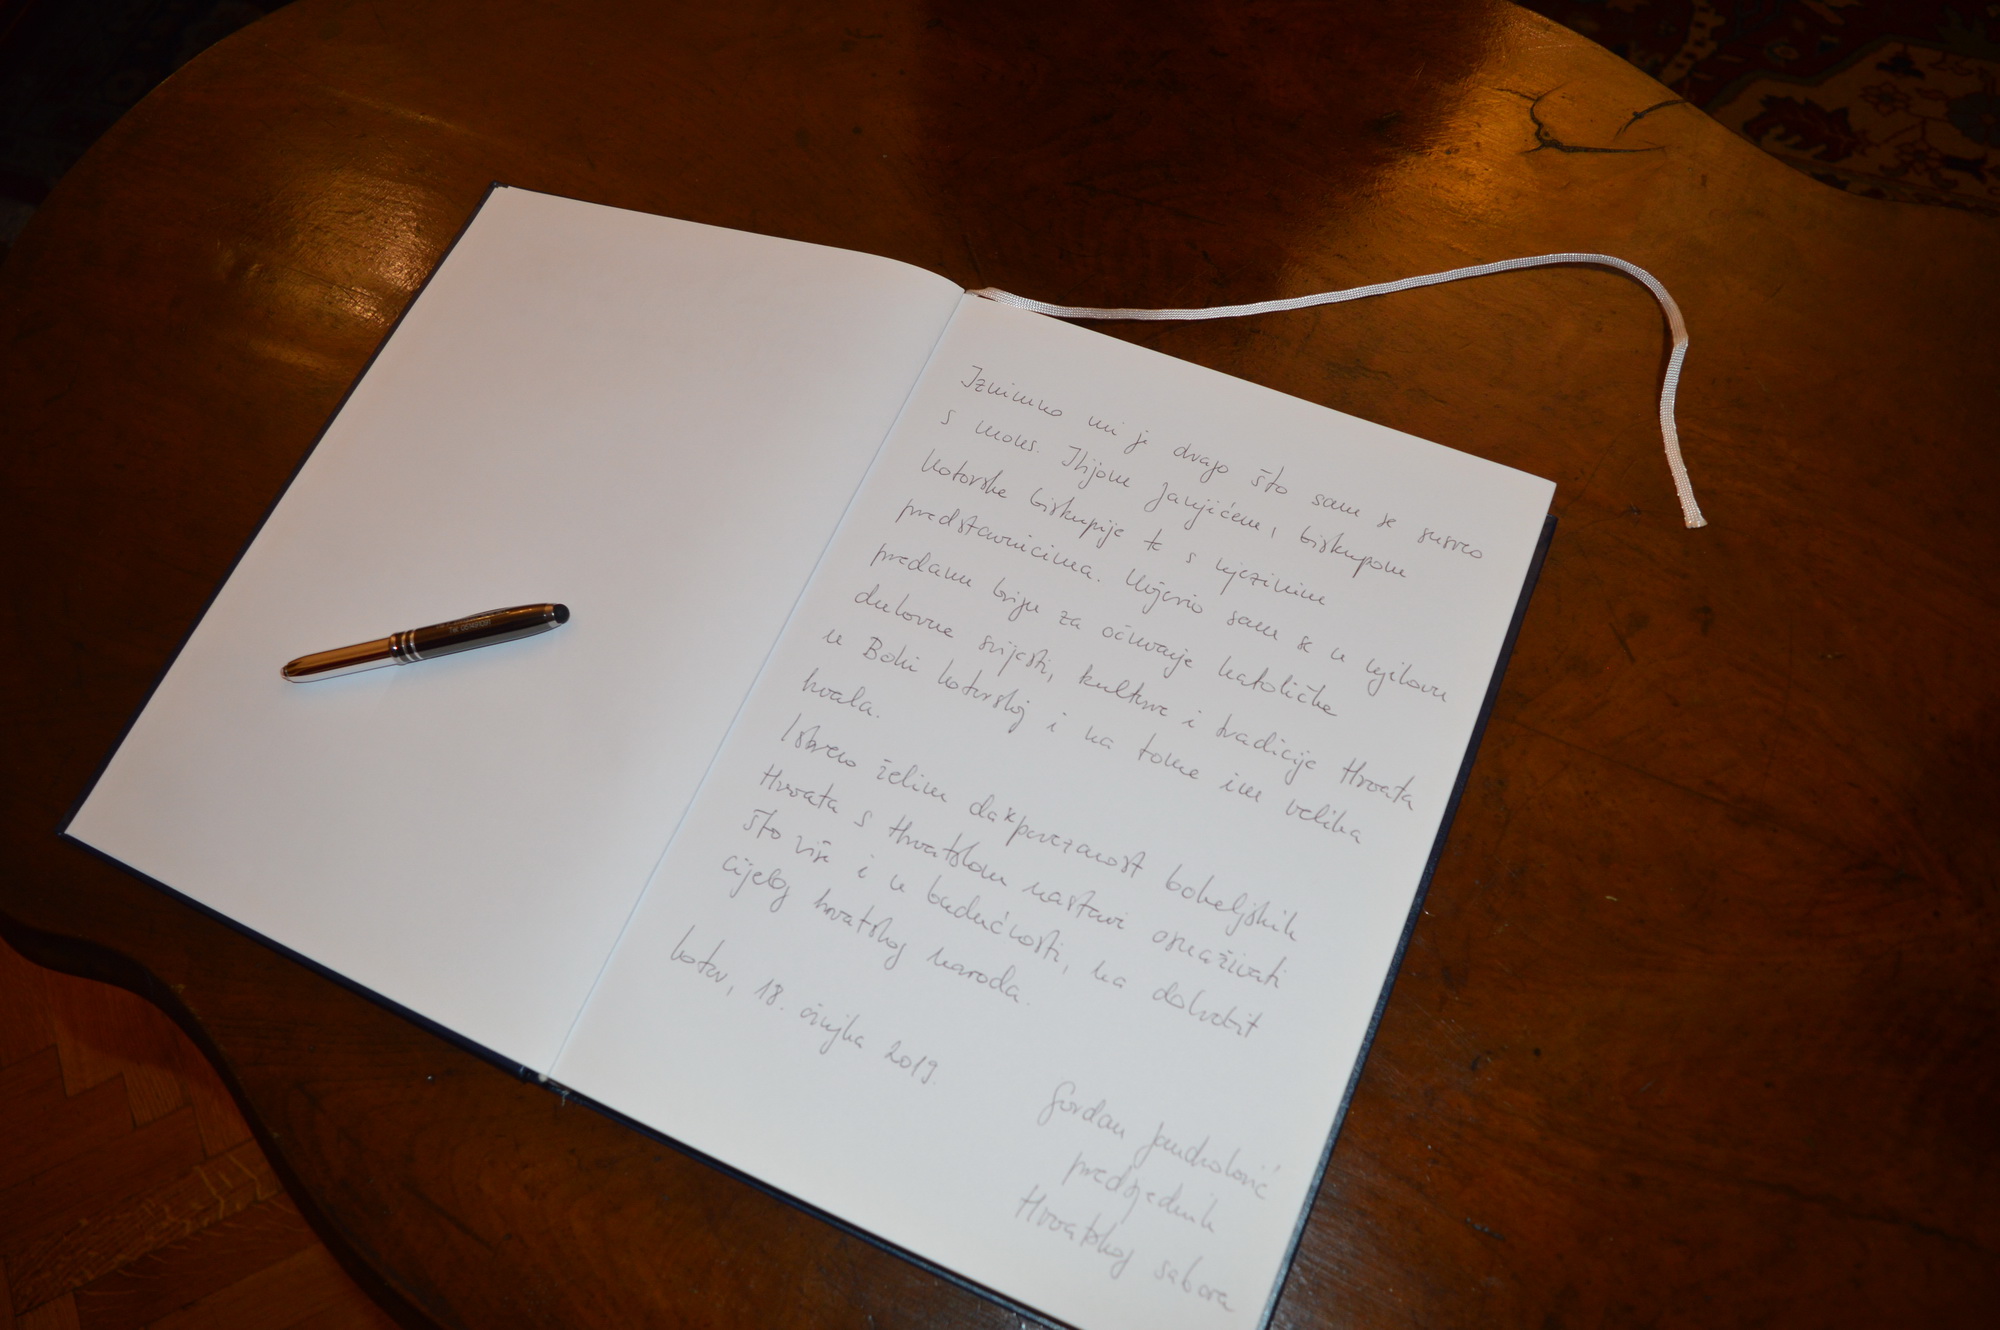 Iznimno mi je drago što sam se susreo
s mons. Ilijom Janjićem, biskupom
Kotorske biskupije te s njezinim
predstavnicima. Uvjerio sam se u njihovu
predanu brigu za očuvanje katoličke
duhovne svijesti, kulture i tradicije Hrvata
u Boki kotorskoj i na tome im velika
hvala.
Iskreno želim da povezanost bokeljskih
Hrvata s Hrvatskom nastavi osnaživati
što više i u budućnosti, na dobrobit
cijelog hrvatskog naroda.
Kotor, 18. ožujka 2019.
Gordan Jandroković
predsjednik
Hrvatskog sabora